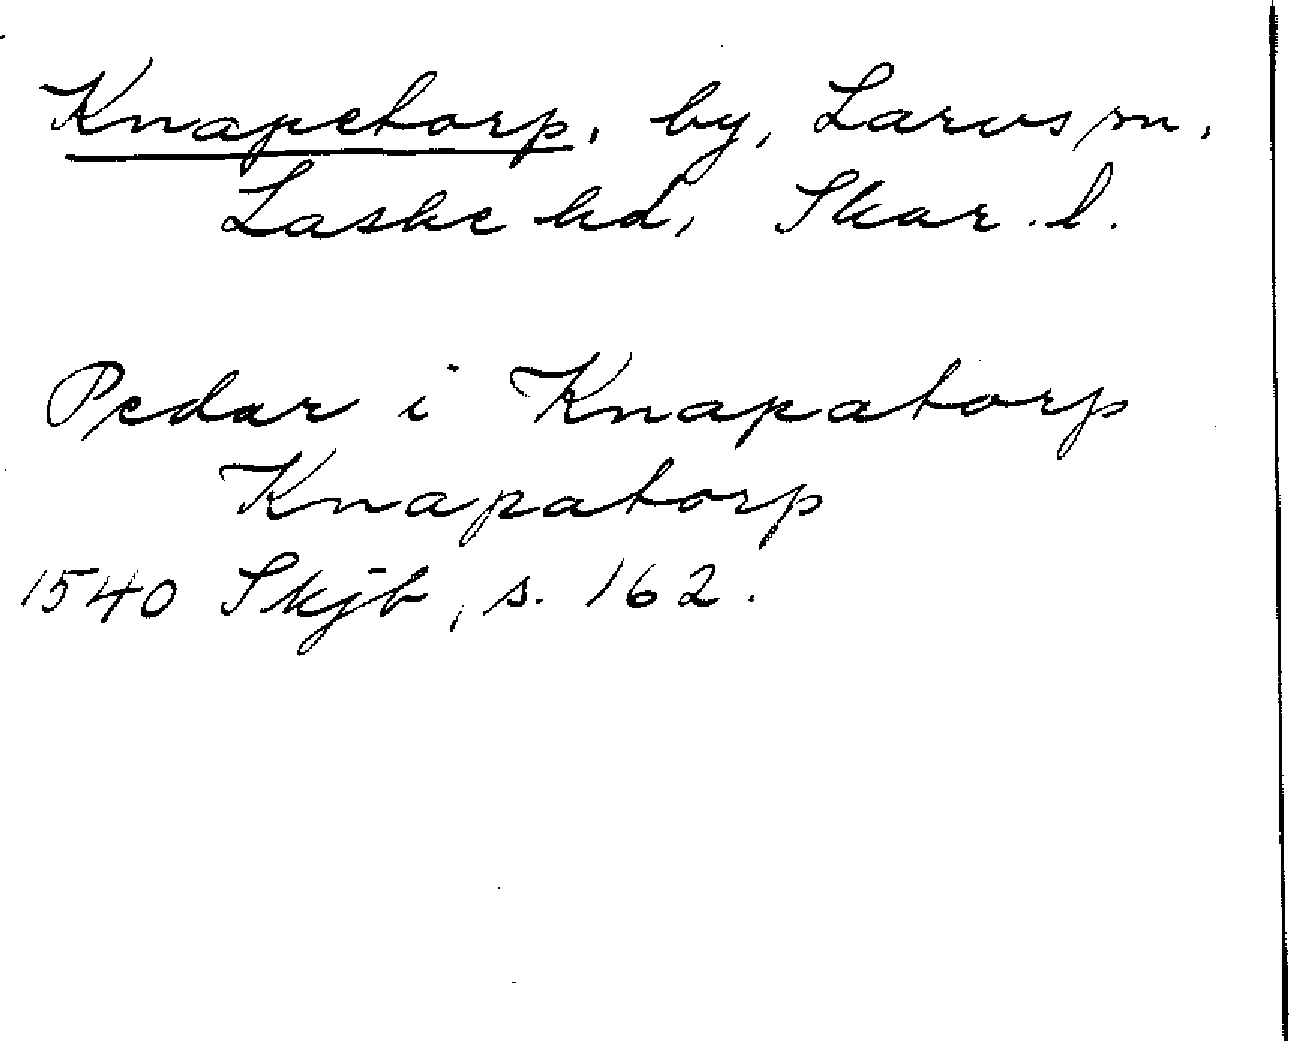 Knapetorp, by, Larvs sn,
Laske hd, Skar. l.
Pedar i Knapatorp
Knapatorp
1540 Skjb, s. 162.